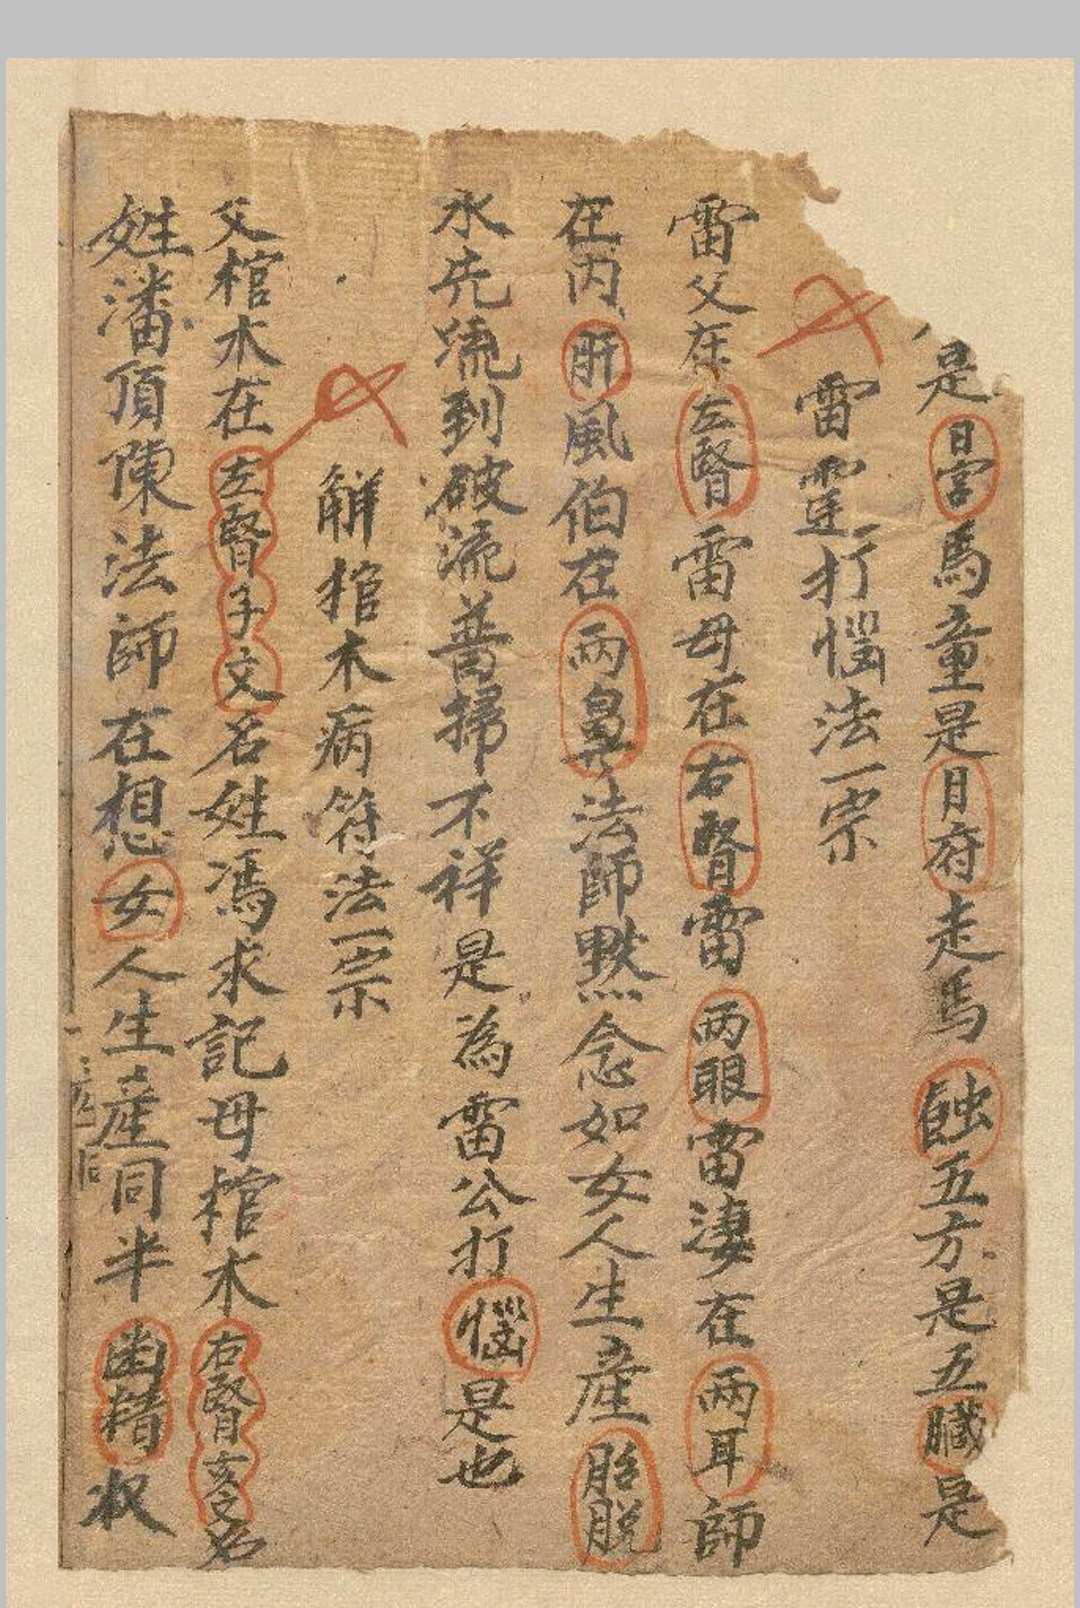 是日宮馬童是月府走馬蝕五方是五臟是
雷霆打惱法一宗
雷父在左腎雷母在右腎雷兩眼雷淒在兩耳師
在內肝風伯在兩鼻法師黙念如女人生產胎脫
水先流到破流普掃不祥是為雷公打惱是也
觧棺木病符法一宗
父棺木在左腎子文名姓馮求記母棺木右腎玄名
姓潘頂陳法師在想女人生產同半幽精収